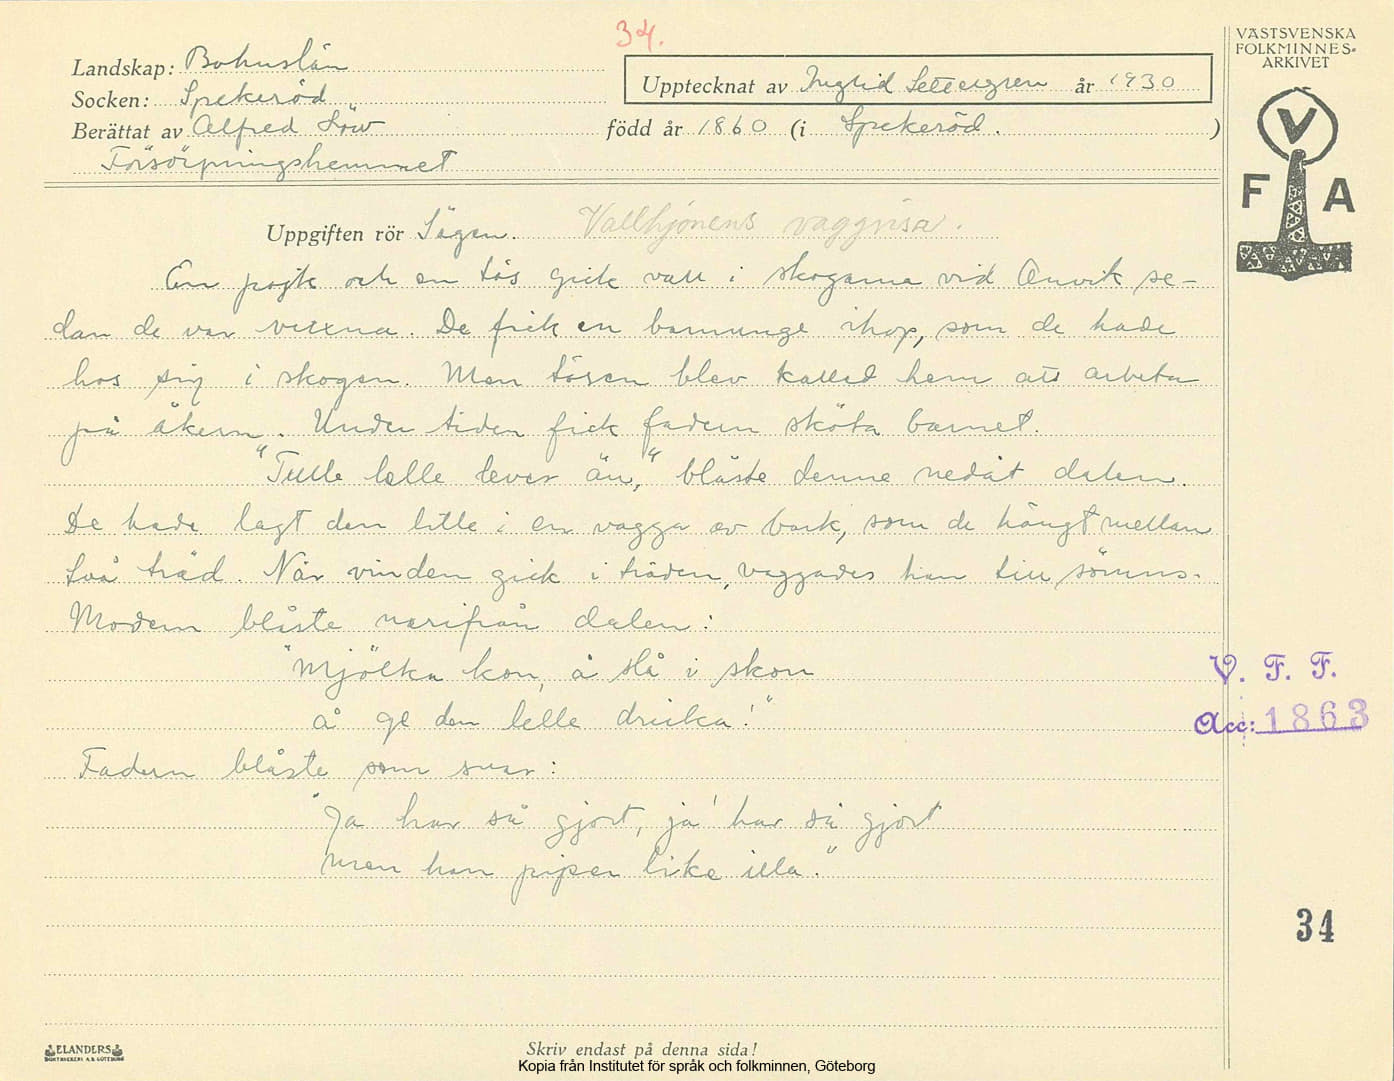 34.
VÄSTSVENSKA
FOLKMINNES-
ARKIVET
Landskap: Bohuslän
Upptecknat av Ingrid Settergren år 1930
Socken: Spekeröd
Berättat av Alfred Löw född år 1860 (i Spekeröd.)
Försörpningshemmet
V
F A
Uppgiften rör Sägen. Vallhjonens vaggvisa.
En pojk och en tös gick vall i skogarna vid Anvik se-
dan de var vuxna. De fick en barnunge ihop, som de hade
hos sig i skogen. Men tösen blev kallad hem att arbeta
på åkern. Under tiden fick fadern sköta barnet.
"Tulle lelle lever än," blåste denne nedåt dalen.
De hade lagt den lille i en vagga av bark, som de hängt mellan
två träd. När vinden gick i träden, vaggades han till sömns.
Modern blåste narifrån dalen:
"Mjölka kon, å slå i skon
å ge den lelle dricka!"
V. F. F.
Acc: 1863
Fadern blåste som svar:
"Ja har så gjort, ja' har så gjort
men han piper like illa."
34
ELANDERS
BOKTRYCKERI A.B. GÖTEBORG
Skriv endast på denna sida!
Kopia från Institutet för språk och folkminnen, Göteborg